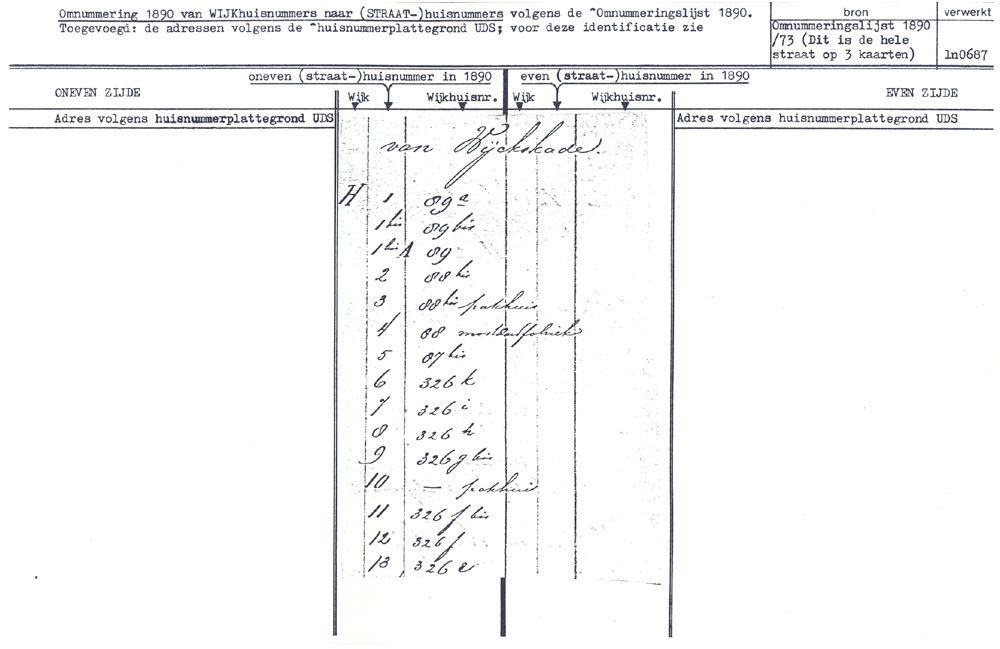 Omnummering 1890 van WIJKhuisnummers naar (STRAAT-)huisnummers volgens de ^Omnummeringslijst 1890.
Toegevoegd: de adressen volgens de ^huisnummerplattegrond UDS; voor deze identificatie zie
bron
Omnummeringslijst 1890
/73 (Dit is de hele
straat op 3 kaarten)
verwerkt
ln0687
oneven (straat-)huisnummer in 1890
even (straat-)huisnummer in 1890
ONEVEN ZIJDE
Wijk
Wijkhuisnr.
Wijk
Wijkhuisnr.
EVEN ZIJDE
Adres volgens huisnummerplattegrond UDS
Adres volgens huisnummerplattegrond UDS
van Wijckskade.
H 1 89 a
1 bis 89 bis
1 bis A 89
2 88 bis
3 88 bis pakhuis
4 88 mosterdfabriek
5 87 bis
6 326 k
7 326 i
8 326 h
9 326 g bis
10 — pakhuis
11 326 f bis
12 326 f
13 326 e